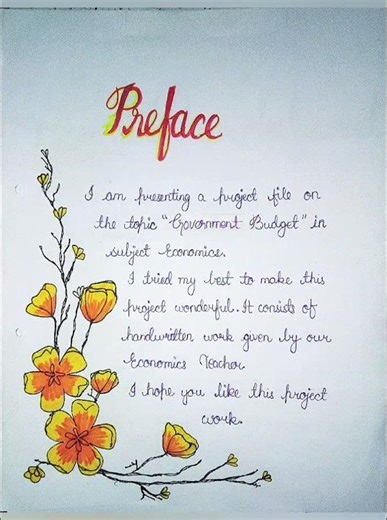 Preface
I am presenting a project file on
the topic "Government Budget" in
subject Economics.
I tried my best to make this
project wonderful. It consists of
handwritten work given by our
Economics Teacher
I hope you like this project
work.